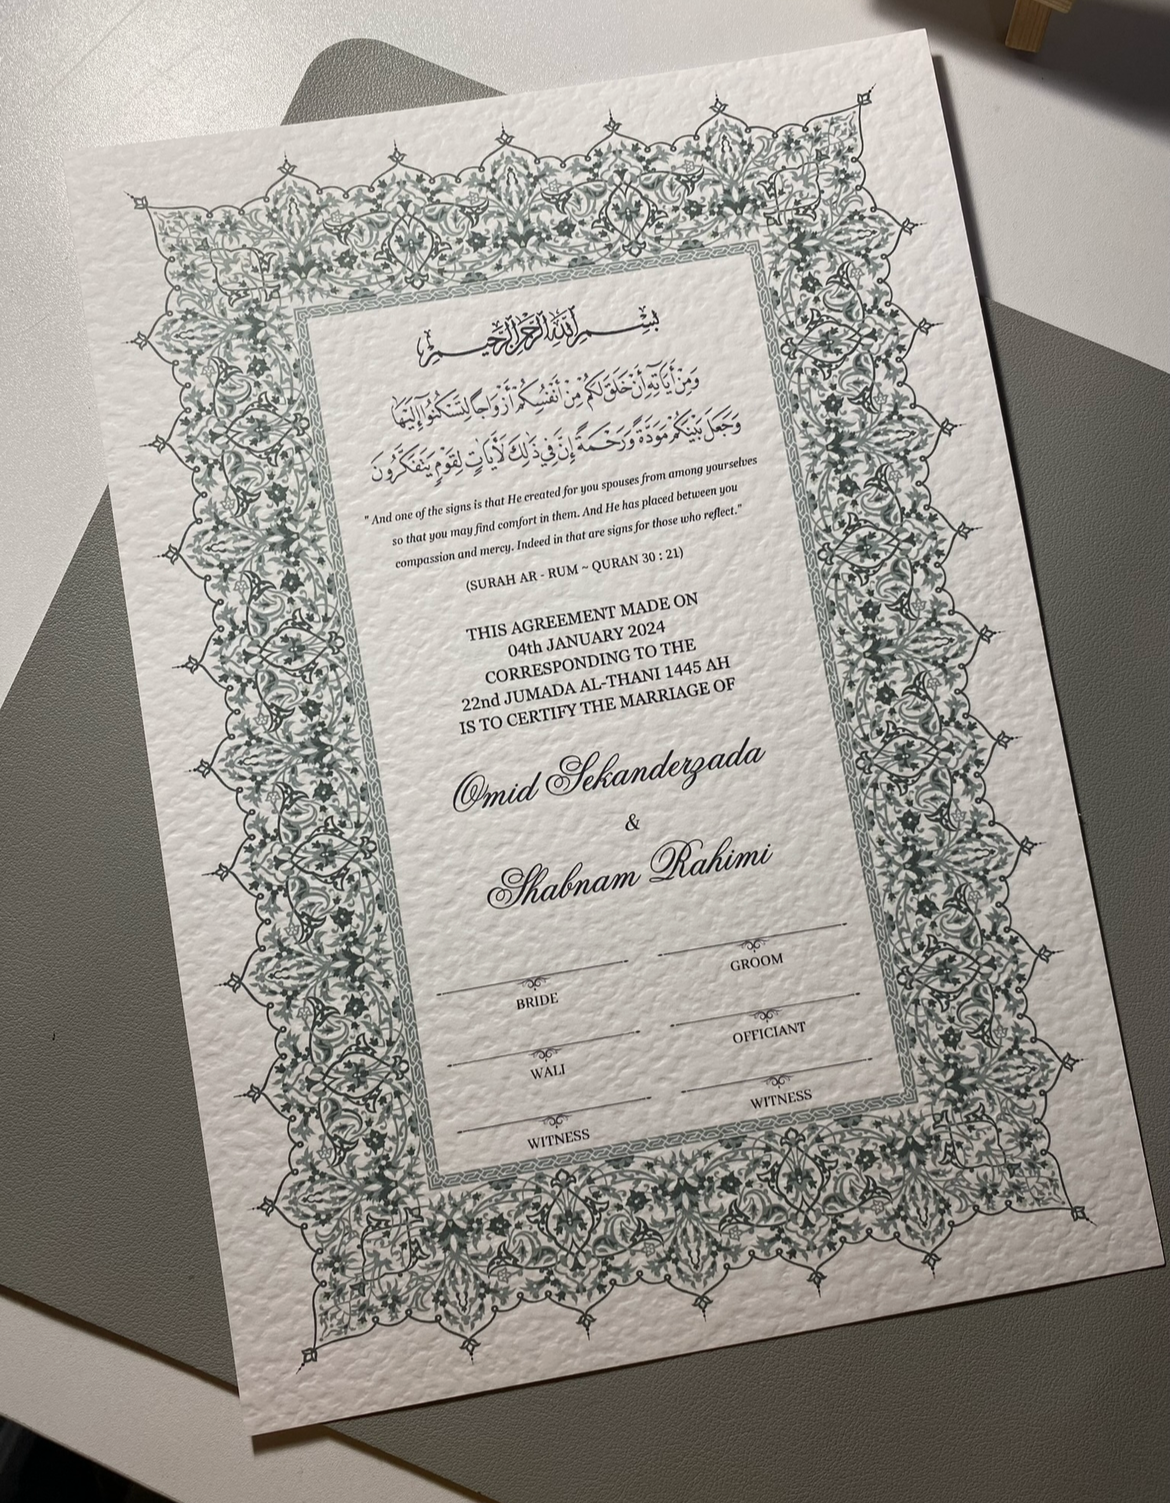 بسم الله الرحمن الرحيم
وَمِنْ أَيَاتِهِ أَنْ خَلَقَ لَكُمْ مِنْ أَنْفُسِكُمْ أَزْوَاجًا لِتَسْكُنُوا إِلَيْهَا
وَجَعَلَ بَيْنَكُمْ مَوَدَّةً وَرَحْمَةً إِنَّ فِي ذَٰلِكَ لَأَيَاتٍ لِقَوْمٍ يَتَفَكَّرُونَ
" And one of the signs is that He created for you spouses from among yourselves
so that you may find comfort in them. And He has placed between you
compassion and mercy. Indeed in that are signs for those who reflect."
(SURAH AR - RUM ~ QURAN 30 : 21)
THIS AGREEMENT MADE ON
04th JANUARY 2024
CORRESPONDING TO THE
22nd JUMADA AL-THANI 1445 AH
IS TO CERTIFY THE MARRIAGE OF
Omid Sekanderzada
&
Shabnam Rahimi
BRIDE
GROOM
WALI
OFFICIANT
WITNESS
WITNESS